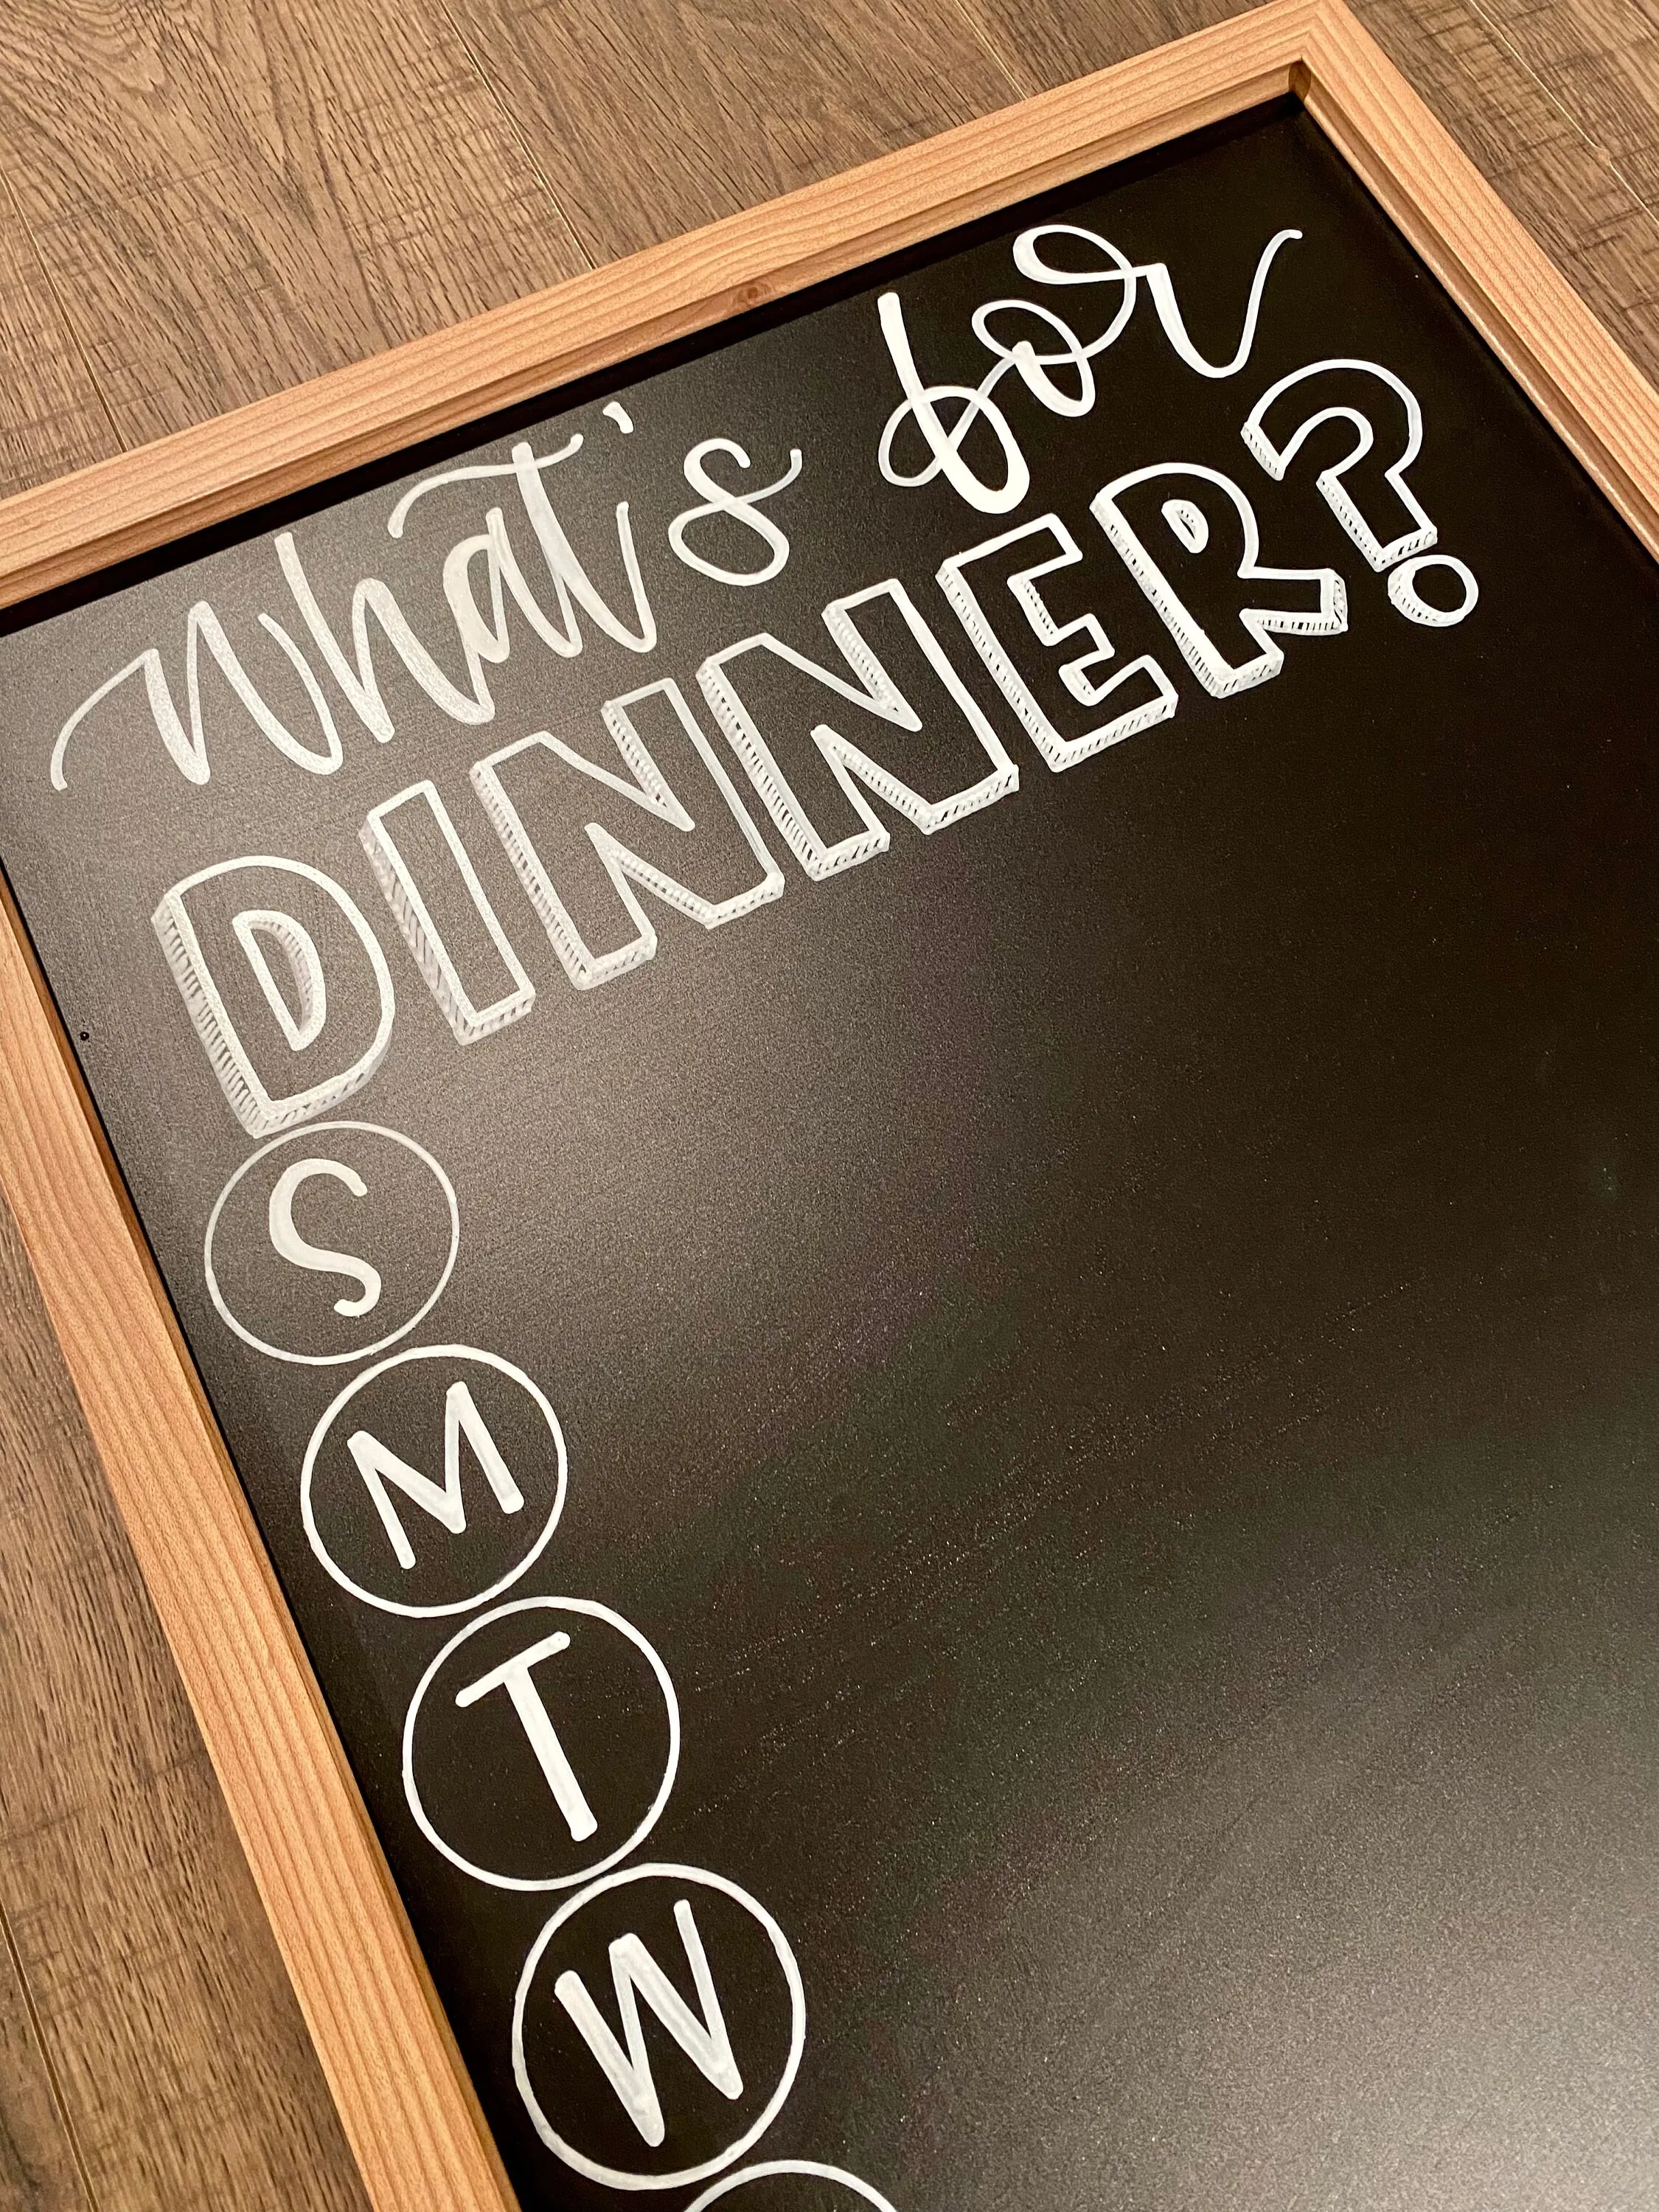 what's for
DINNER?
S
M
T
W